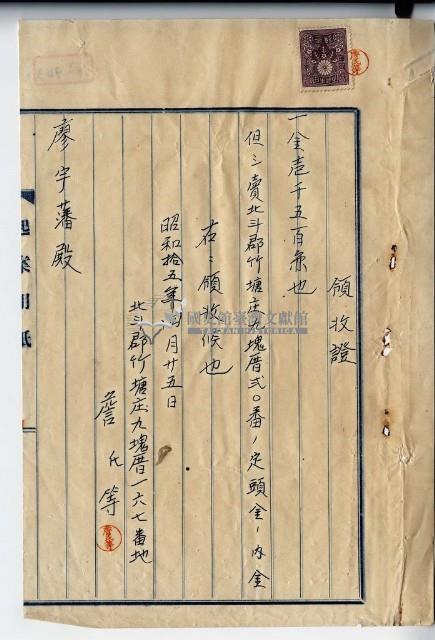 領收證
一金壱千五百条也
但シ賣北斗郡竹塘庄九塊厝弍〇番ノ定頭金ノ內金
右ニ領收候也
昭和拾五年 月廿五日
北斗郡竹塘庄九塊厝一六七番地
詹氏等
廖宇藩殿
起案用紙
國史館臺灣文獻館
TAIWAN HISTORICA